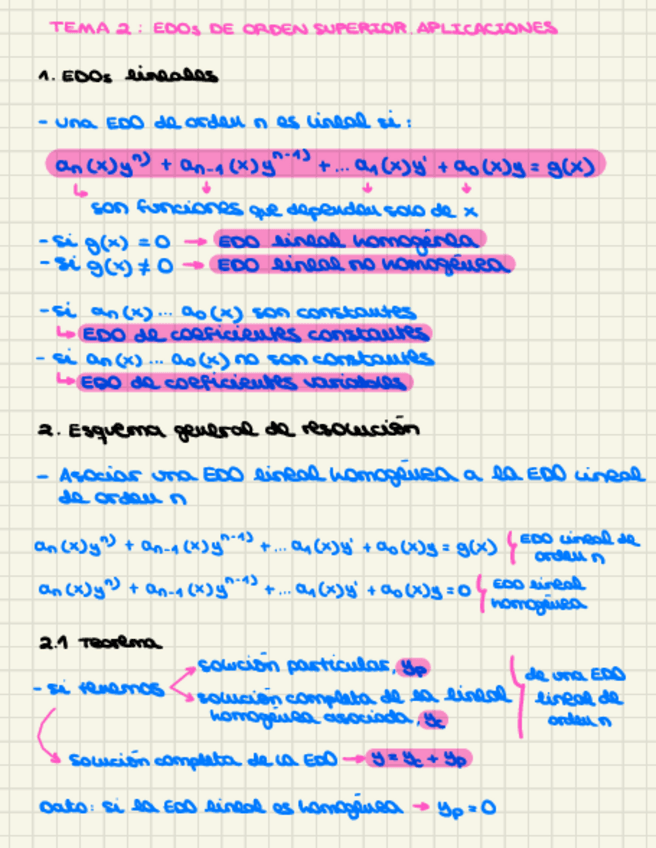 TEMA 2: EDOs DE ORDEN SUPERIOR. APLICACIONES
1. EDOs lineales
- una EDO de orden n es lineal si:
aₙ(x)yⁿ⁾ + aₙ₋₁(x)yⁿ⁻¹⁾ + ... a₁(x)y' + a₀(x)y = g(x)
↳ ↓ ↓ ↓
son funciones que dependen solo de x
- si g(x) = 0 → EDO lineal homogénea
- si g(x) ≠ 0 → EDO lineal no homogénea
- si aₙ(x) ... a₀(x) son constantes
↳ EDO de coeficientes constantes
- si aₙ(x) ... a₀(x) no son constantes
↳ EDO de coeficientes variables
2. Esquema general de resolución
- Asociar una EDO lineal homogénea a la EDO lineal
de orden n
aₙ(x)yⁿ⁾ + aₙ₋₁(x)yⁿ⁻¹⁾ + ... a₁(x)y' + a₀(x)y = g(x) { EDO lineal de
orden n
aₙ(x)yⁿ⁾ + aₙ₋₁(x)yⁿ⁻¹⁾ + ... a₁(x)y' + a₀(x)y = 0 { EDO lineal
homogénea
2.1 Teorema
- si tenemos
solución particular, yₚ
solución completa de la lineal
homogénea asociada, y꜀
de una EDO
lineal de
orden n
solución completa de la EDO → y = y꜀ + yₚ
Dato: si la EDO lineal es homogénea → yₚ = 0